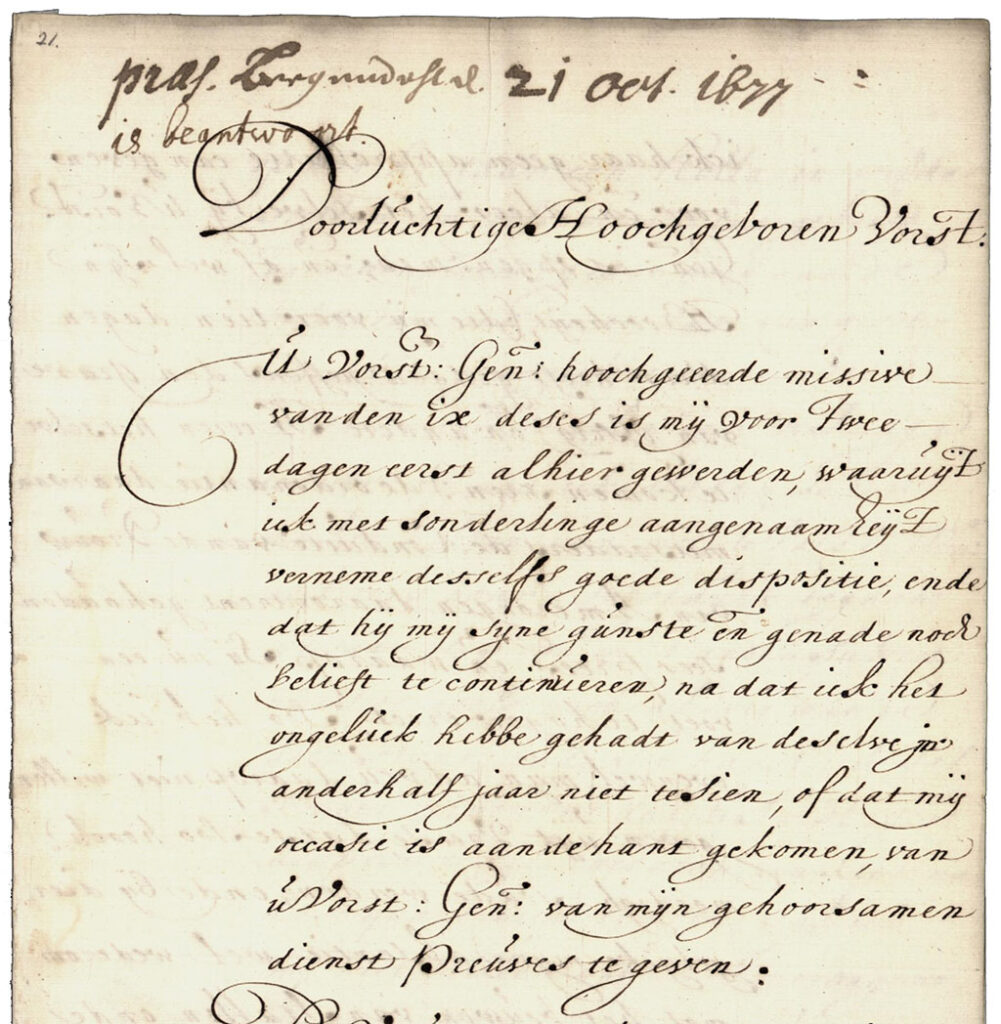 21.
præs. Bergendael. 21 oct. 1677
is beantwoort.
Doorluchtige Hoochgeboren Vorst:
U Vorst: Gen: hoochgeeerde missive
vanden ix deses is mij voor twee
dagen eerst alhier gewerden, waaruijt
ick met sonderlinge aangenaamheijt
verneme desselfs goede dispositie, ende
dat hij mij syne gunste en genade noch
belieft te continueren, na dat ick het
ongeluck hebbe gehadt van deselve in
anderhalf jaar niet te sien, of dat mij
occasie is aan de hant gekomen, van
u Vorst: Gen: van mijn gehoorsamen
dienst preuves te geven.